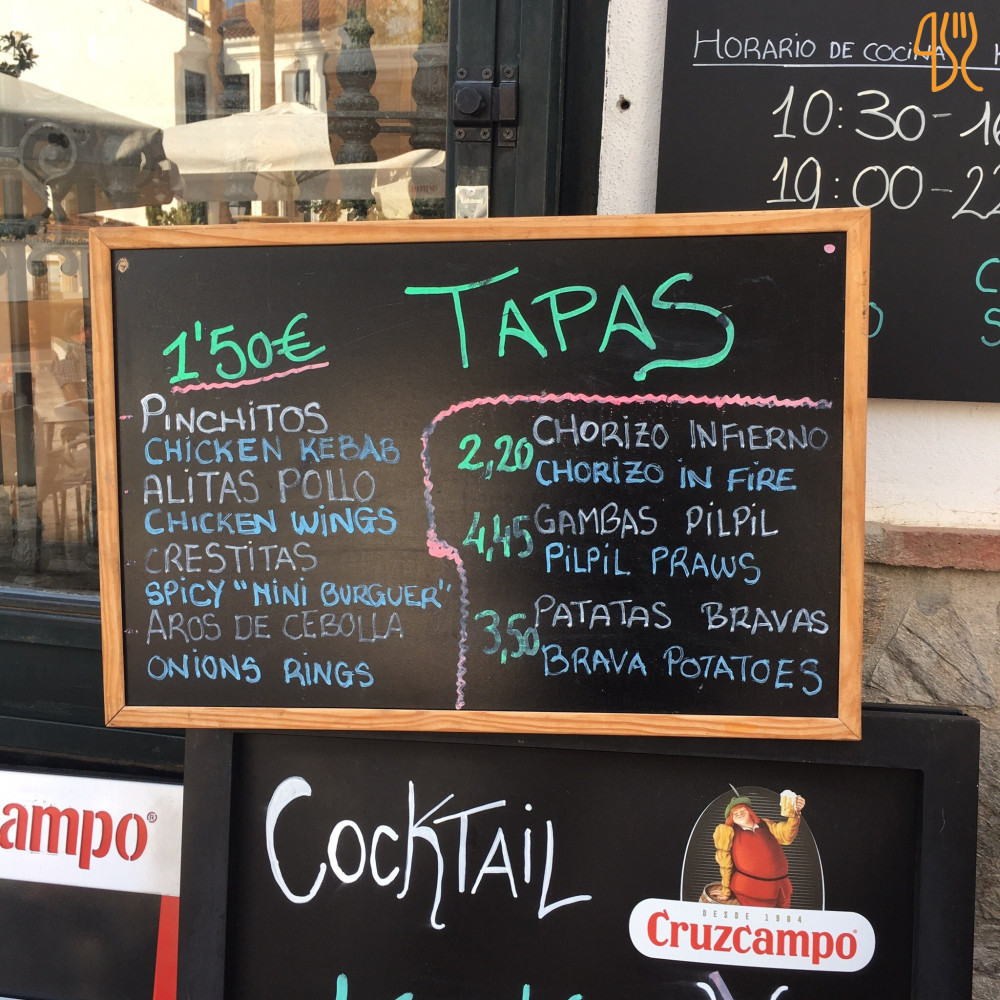 HORARIO DE COCINA
10:30-16
19:00-22
TAPAS
1'50€
PINCHITOS
CHICKEN KEBAB
ALITAS POLLO
CHICKEN WINGS
CRESTITAS
SPICY "MINI BURGUER"
AROS DE CEBOLLA
ONIONS RINGS
2,20 CHORIZO INFIERNO
CHORIZO IN FIRE
4,45 GAMBAS PILPIL
PILPIL PRAWS
3,50 PATATAS BRAVAS
BRAVA POTATOES
COCKTAIL
DESDE 1904
Cruzcampo®
ampo®